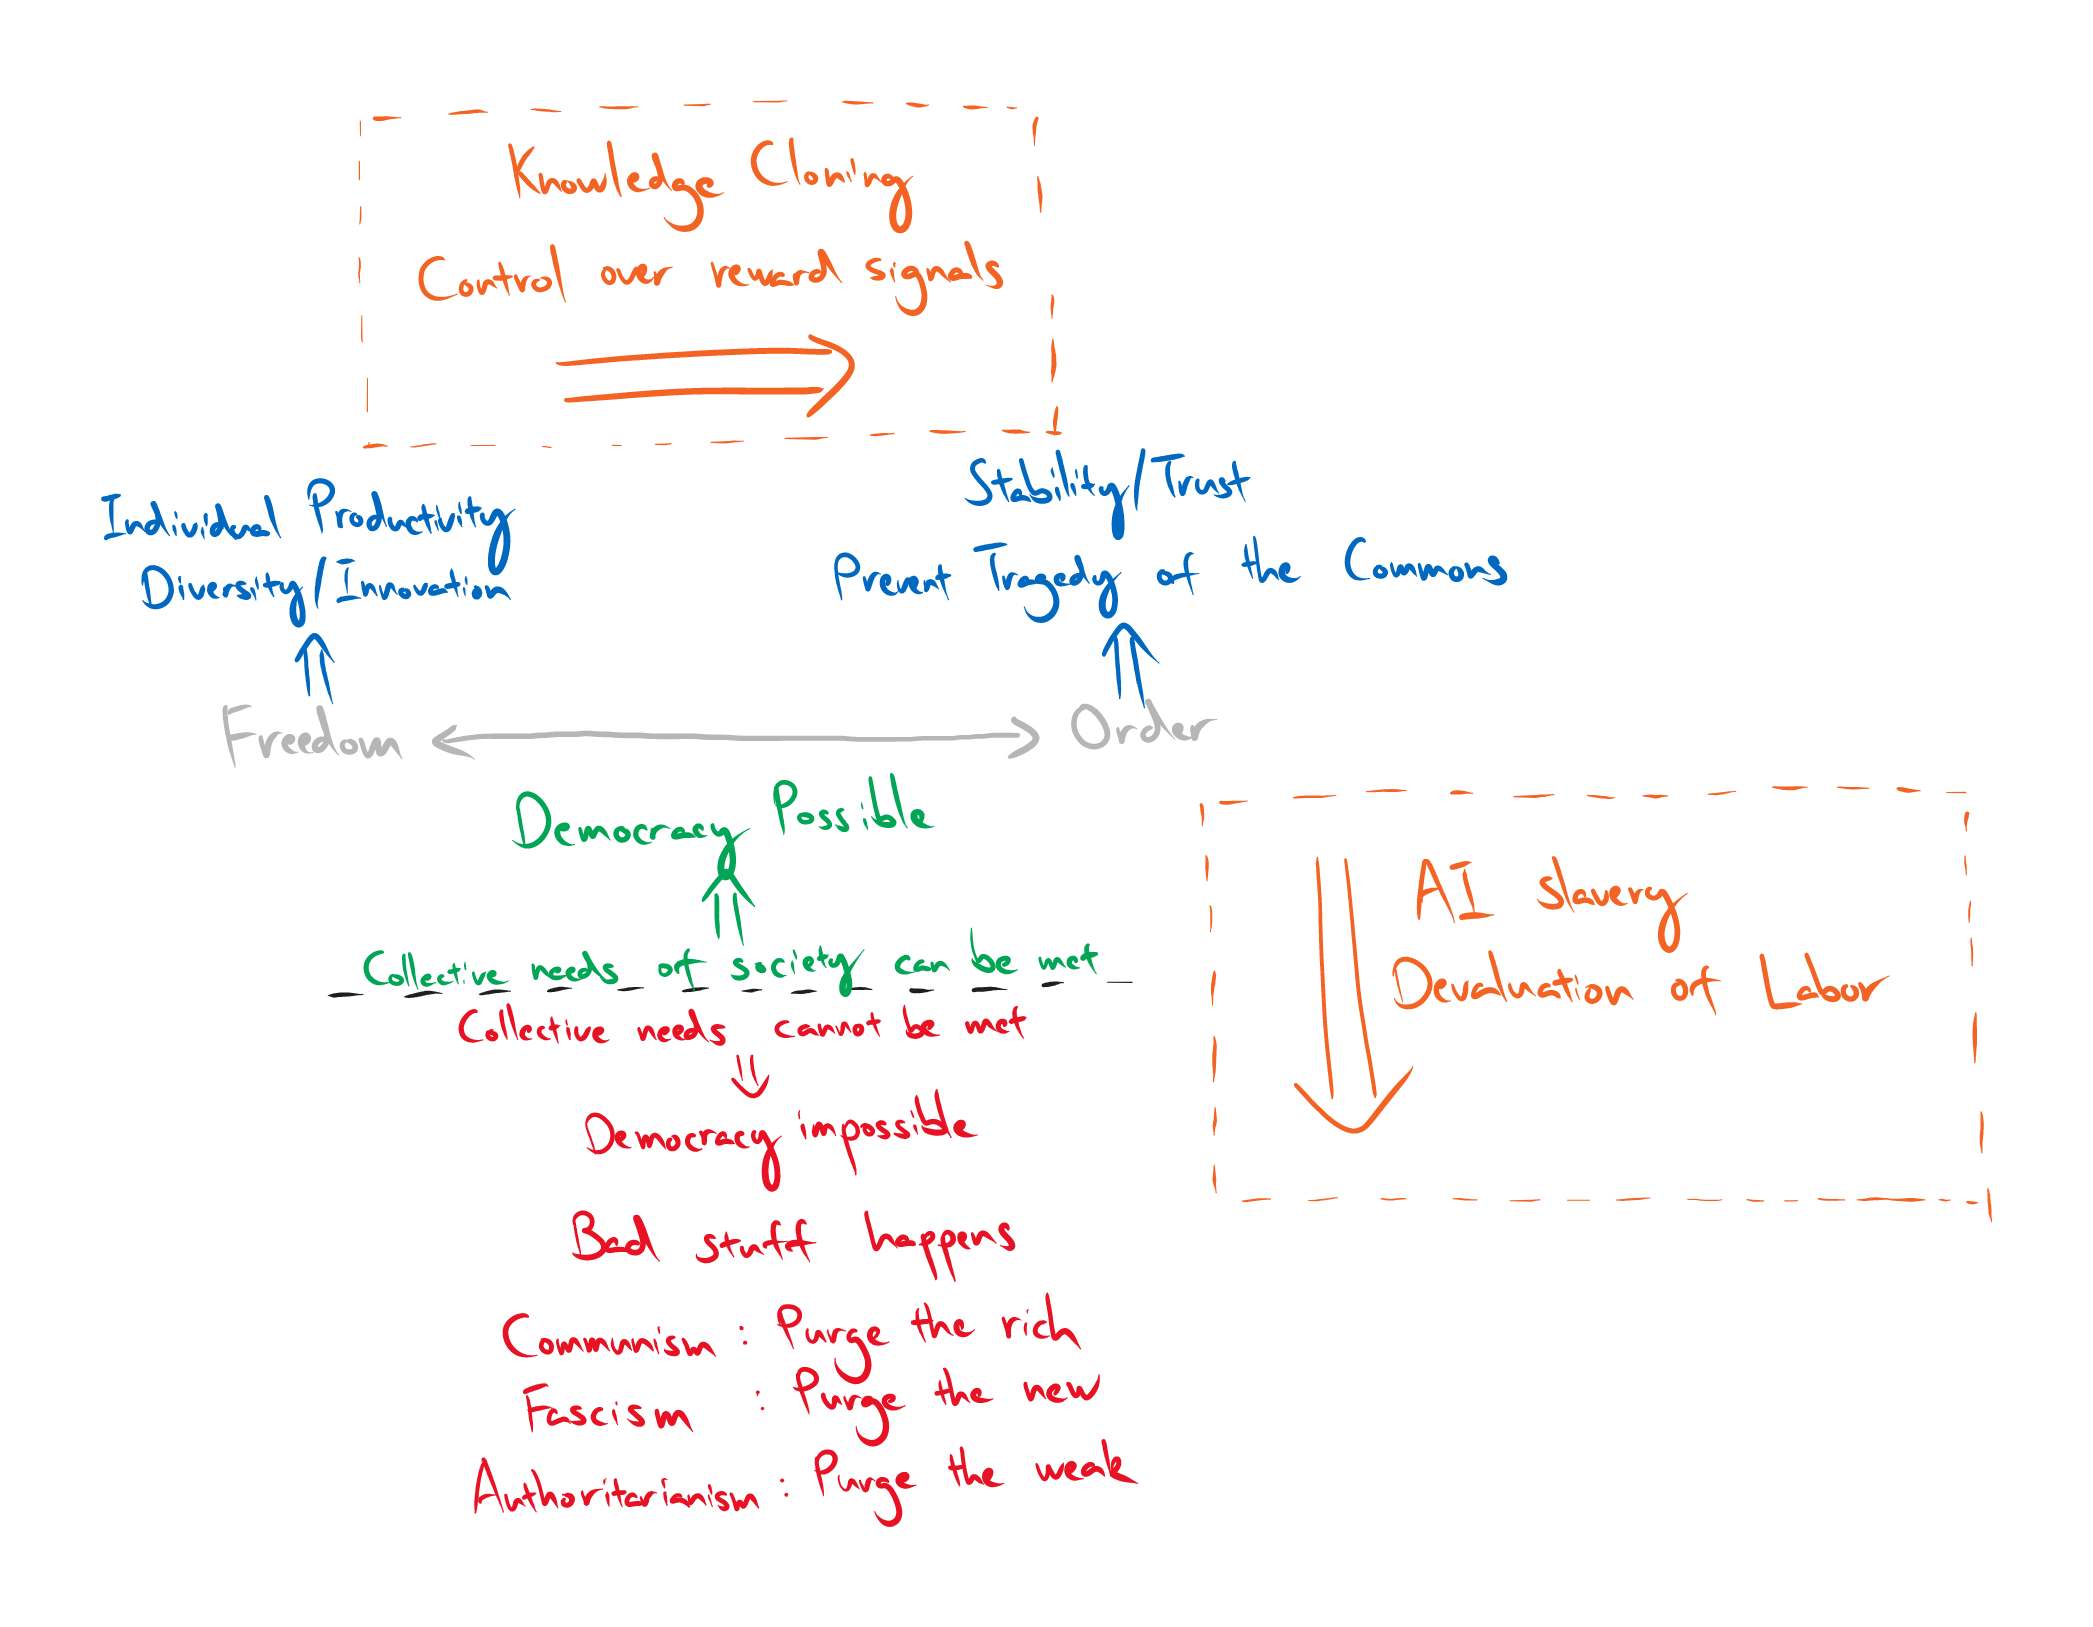 Knowledge Cloning
Control over reward signals
Individual Productivity
Diversity/Innovation
Stability/Trust
Prevent Tragedy of the Commons
Freedom
Order
Democracy Possible
Collective needs of society can be met
Collective needs cannot be met
Democracy impossible
Bad stuff happens
Communism : Purge the rich
Fascism : Purge the new
Authoritarianism : Purge the weak
AI slavery
Devaluation of Labor